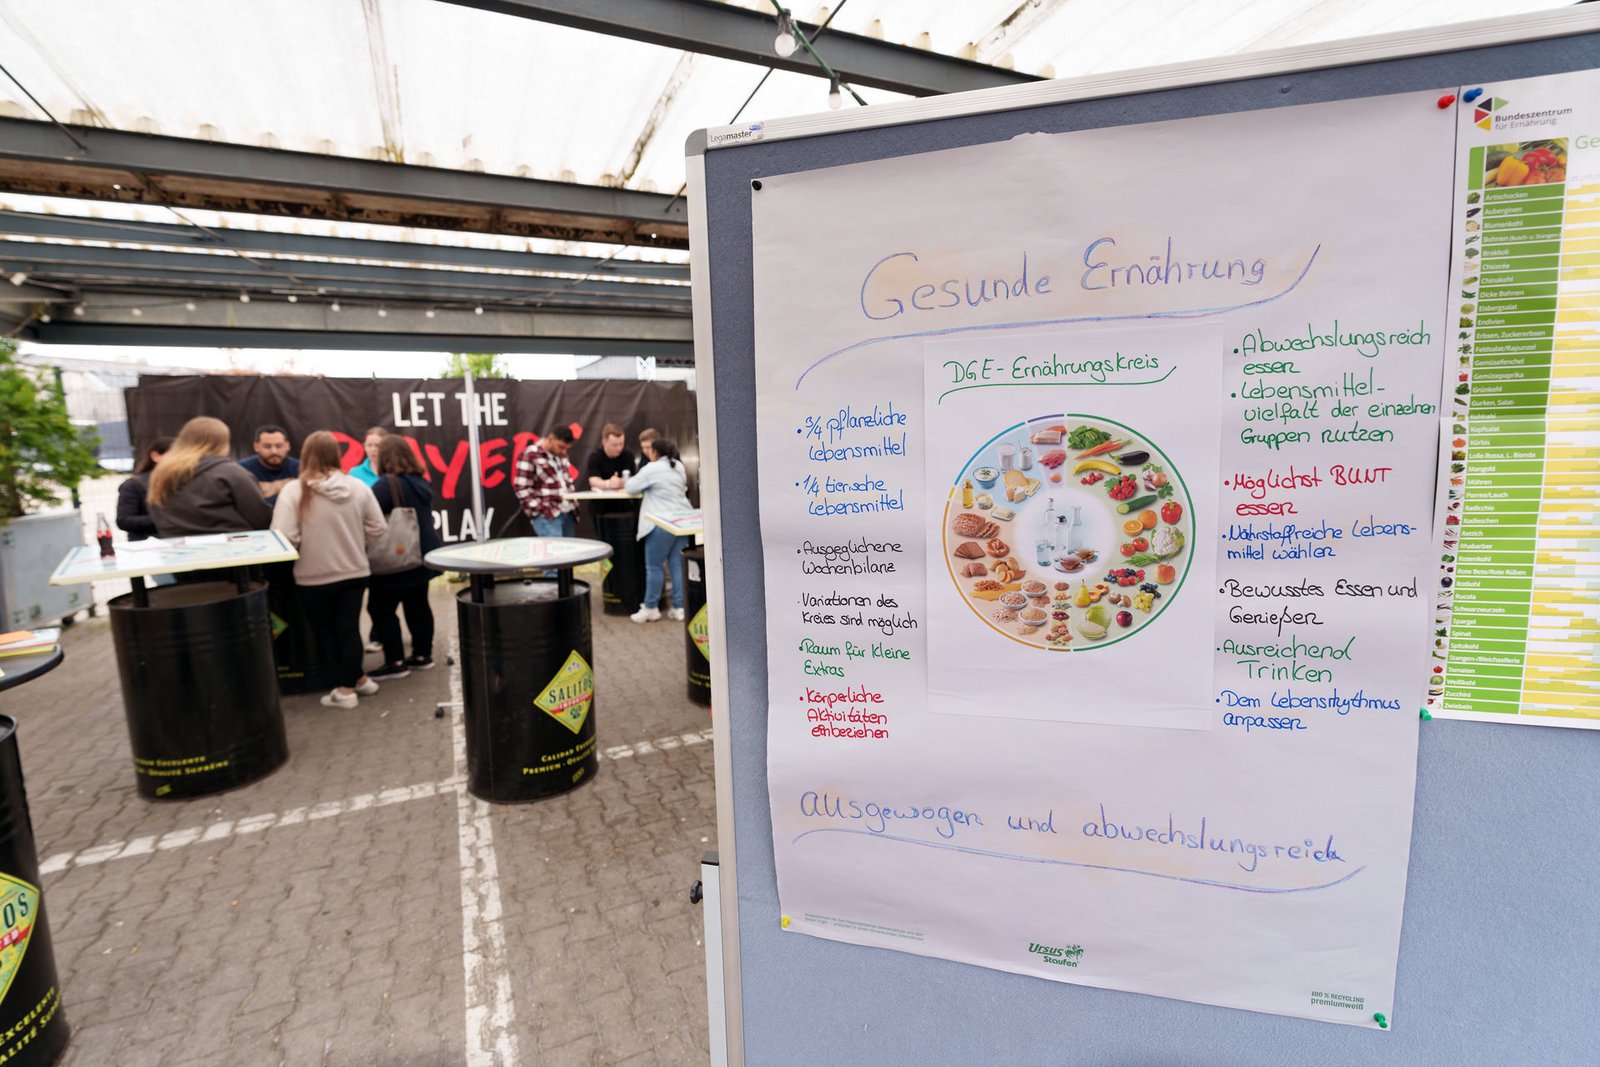 LET THE
PLAY
SALITOS
IMPORTED
CALIDAD EXCELENTE
PREMIUM - QUALITÉ SUPRÊME
Legamaster
Gesunde Ernährung
DGE-Ernährungskreis
• 3/4 pflanzliche
Lebensmittel
• 1/4 tierische
Lebensmittel
• Ausgeglichene
Wochenbilanz
• Variationen des
Kreies sind möglich
• Raum für Kleine
Extras
• Körperliche
Aktivitäten
einbeziehen
• Abwechslungsreich
essen
• Lebensmittel-
vielfalt der einzelnen
Gruppen nutzen
• Möglichst BUNT
essen
• Nährstoffreiche Lebens-
mittel wählen
• Bewusstes Essen und
Genießen
• Ausreichend
Trinken
• Dem Lebensrhytmus
anpassen
ausgewogen und abwechslungsreich
Ursus
Staufen
100 % RECYCLING
premiumweiß
Bundeszentrum
für Ernährung
Ge
Artischocken
Auberginen
Blumenkohl
Bohnen (Busch- u. Stangen)
Brokkoli
Chicorée
Chinakohl
Dicke Bohnen
Eisbergsalat
Endivien
Erbsen, Zuckererbsen
Feldsalat/Rapunzel
Gemüsefenchel
Gemüsepaprika
Grünkohl
Gurken, Salat-
Kohlrabi
Kopfsalat
Kürbis
Lollo Rossa, L. Bionda
Mangold
Möhren
Porree/Lauch
Radicchio
Radieschen
Rettich
Rhabarber
Rosenkohl
Rote Bete/Rote Rüben
Rotkohl
Rucola
Schwarzwurzeln
Spargel
Spinat
Spitzkohl
Stangen-/Bleichsellerie
Tomaten
Weißkohl
Zucchini
Zwiebeln